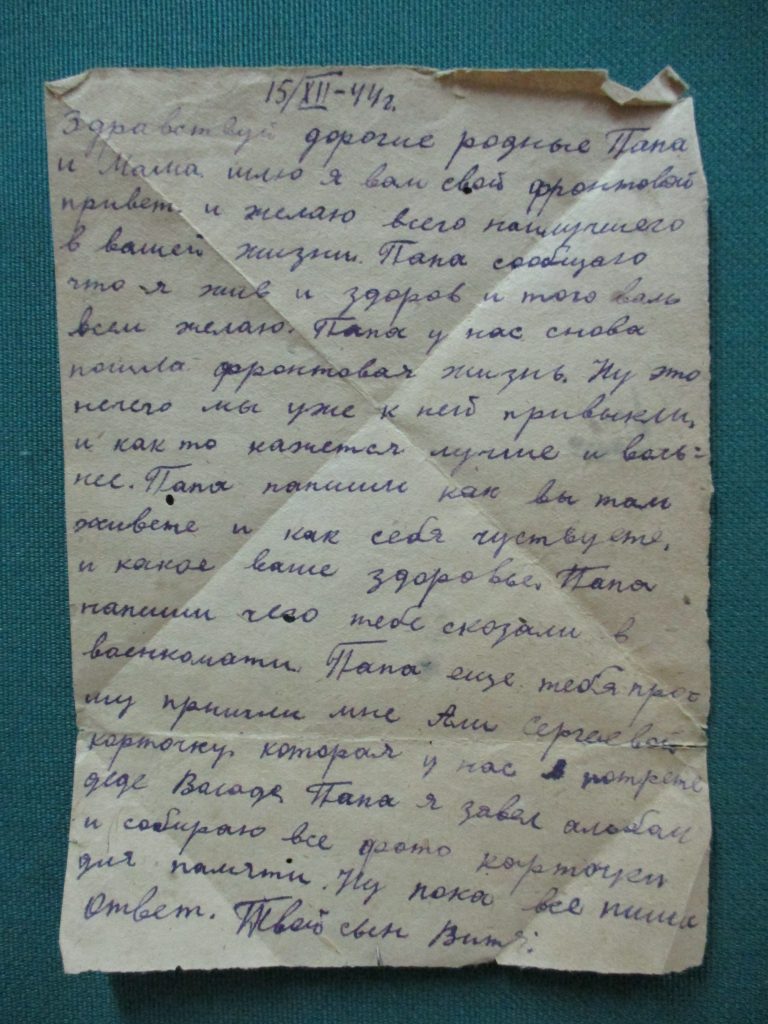 15/XII-44г.
Здравствуй дорогие родные Папа
и Мама шлю я вам свой фронтовой
привет. и желаю всего наилучшего
в вашей жизни. Папа сообщаю
что я жив и здоров и того вам
всем желаю. Папа у нас снова
пошла фронтовая жизнь. Ну это
нечего мы уже к ней привыкли,
и как то кажется лучше и воль=
нее. Папа напиши как вы там
живете и как себя чуствуете,
и какое ваше здоровье. Папа
напиши чего тебе сказали в
военкомати. Папа еще тебя про=
шу пришли мне Али Сергеевой
карточку, которая у нас в потрете
деде Папа я завел альбом
и собираю все фото карточки
для памяти. Ну пока все пиши
Ответ. Твой сын Витя.